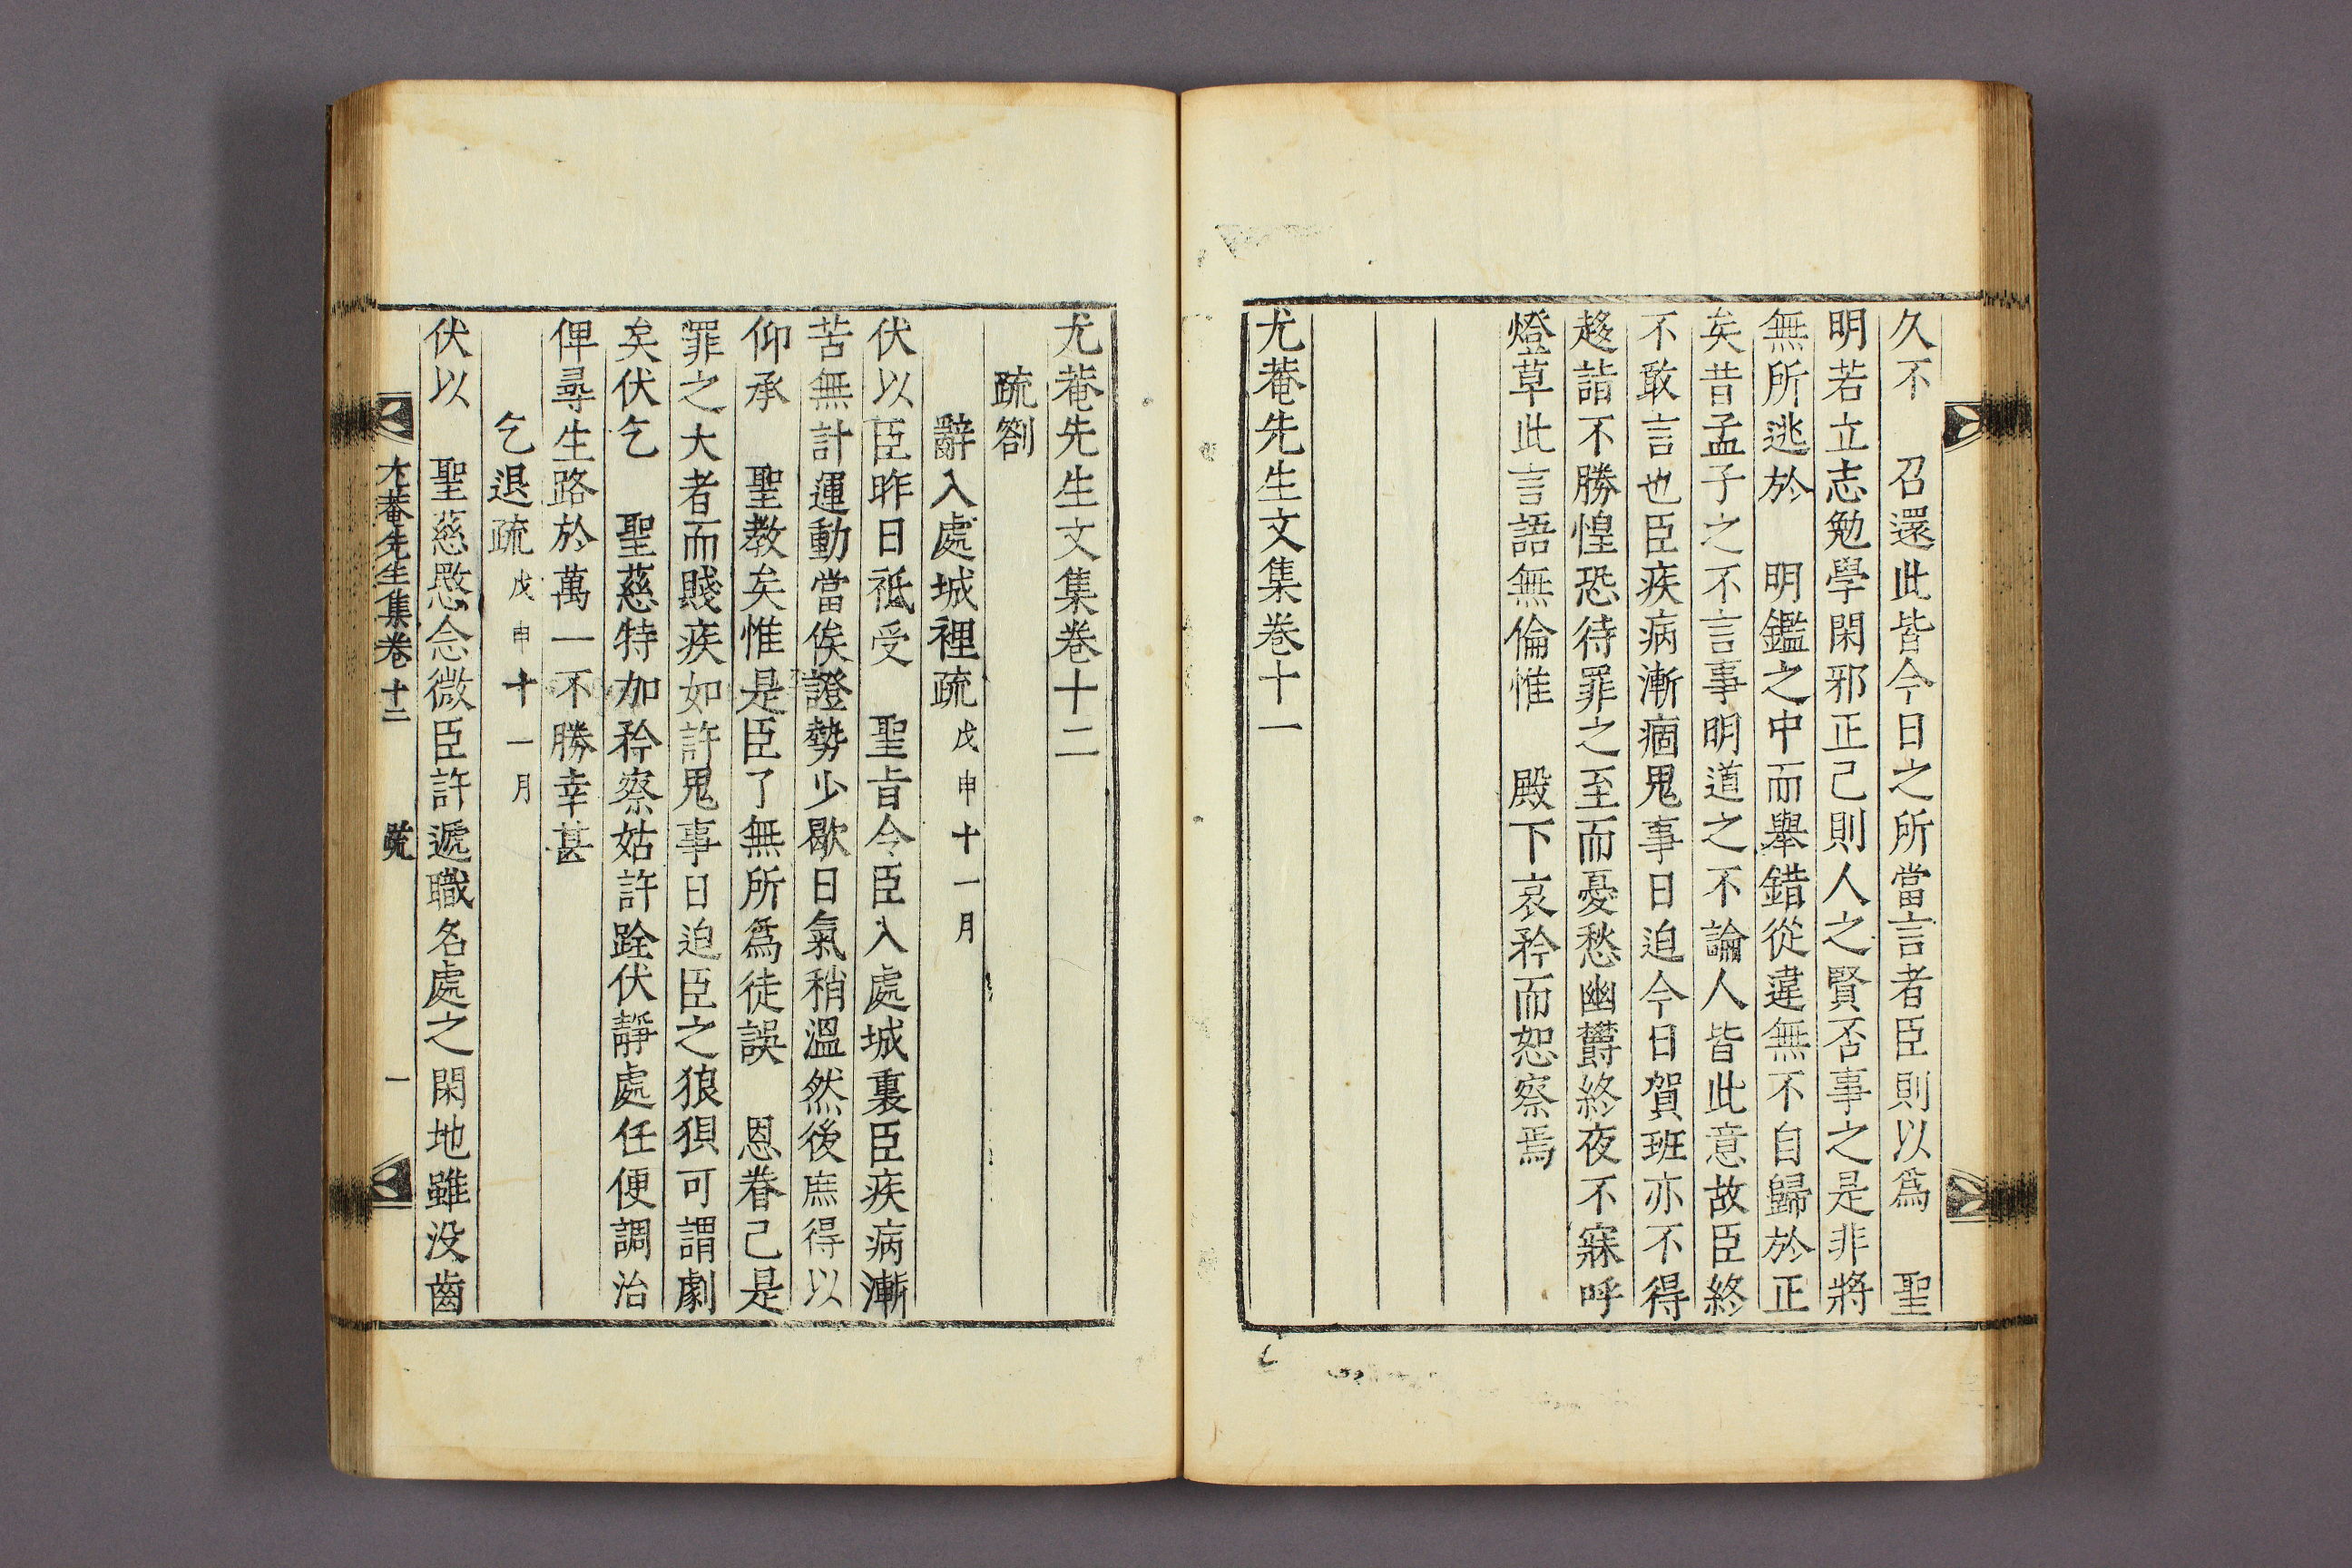 久不　召還此皆今日之所當言者臣則以爲　聖
明若立志勉學閑邪正己則人之賢否事之是非將
無所逃於　明鑑之中而舉錯從違無不自歸於正
矣昔孟子之不言事明道之不論人皆此意故臣終
不敢言也臣疾病漸痼鬼事日迫今日賀班亦不得
趍詣不勝惶恐待罪之至而憂愁幽欝終夜不寐呼
燈草此言語無倫惟　殿下哀矜而恕察焉
尤菴先生文集卷十一
尤菴先生文集卷十二
疏劄
辭入處城裡疏戊申十一月
伏以臣昨日祗受　聖旨令臣入處城裏臣疾病漸
苦無計運動當俟證勢少歇日氣稍溫然後庶得以
仰承　聖教矣惟是臣了無所爲徒誤　恩眷己是
罪之大者而賤疾如許鬼事日迫臣之狼狽可謂劇
矣伏乞　聖慈特加矜察姑許跧伏靜處任便調治
俾尋生路於萬一不勝幸甚
乞退疏戊申十一月
伏以　聖慈愍念微臣許遞職名處之閑地雖没齒
尤菴先生集卷十二　疏　一